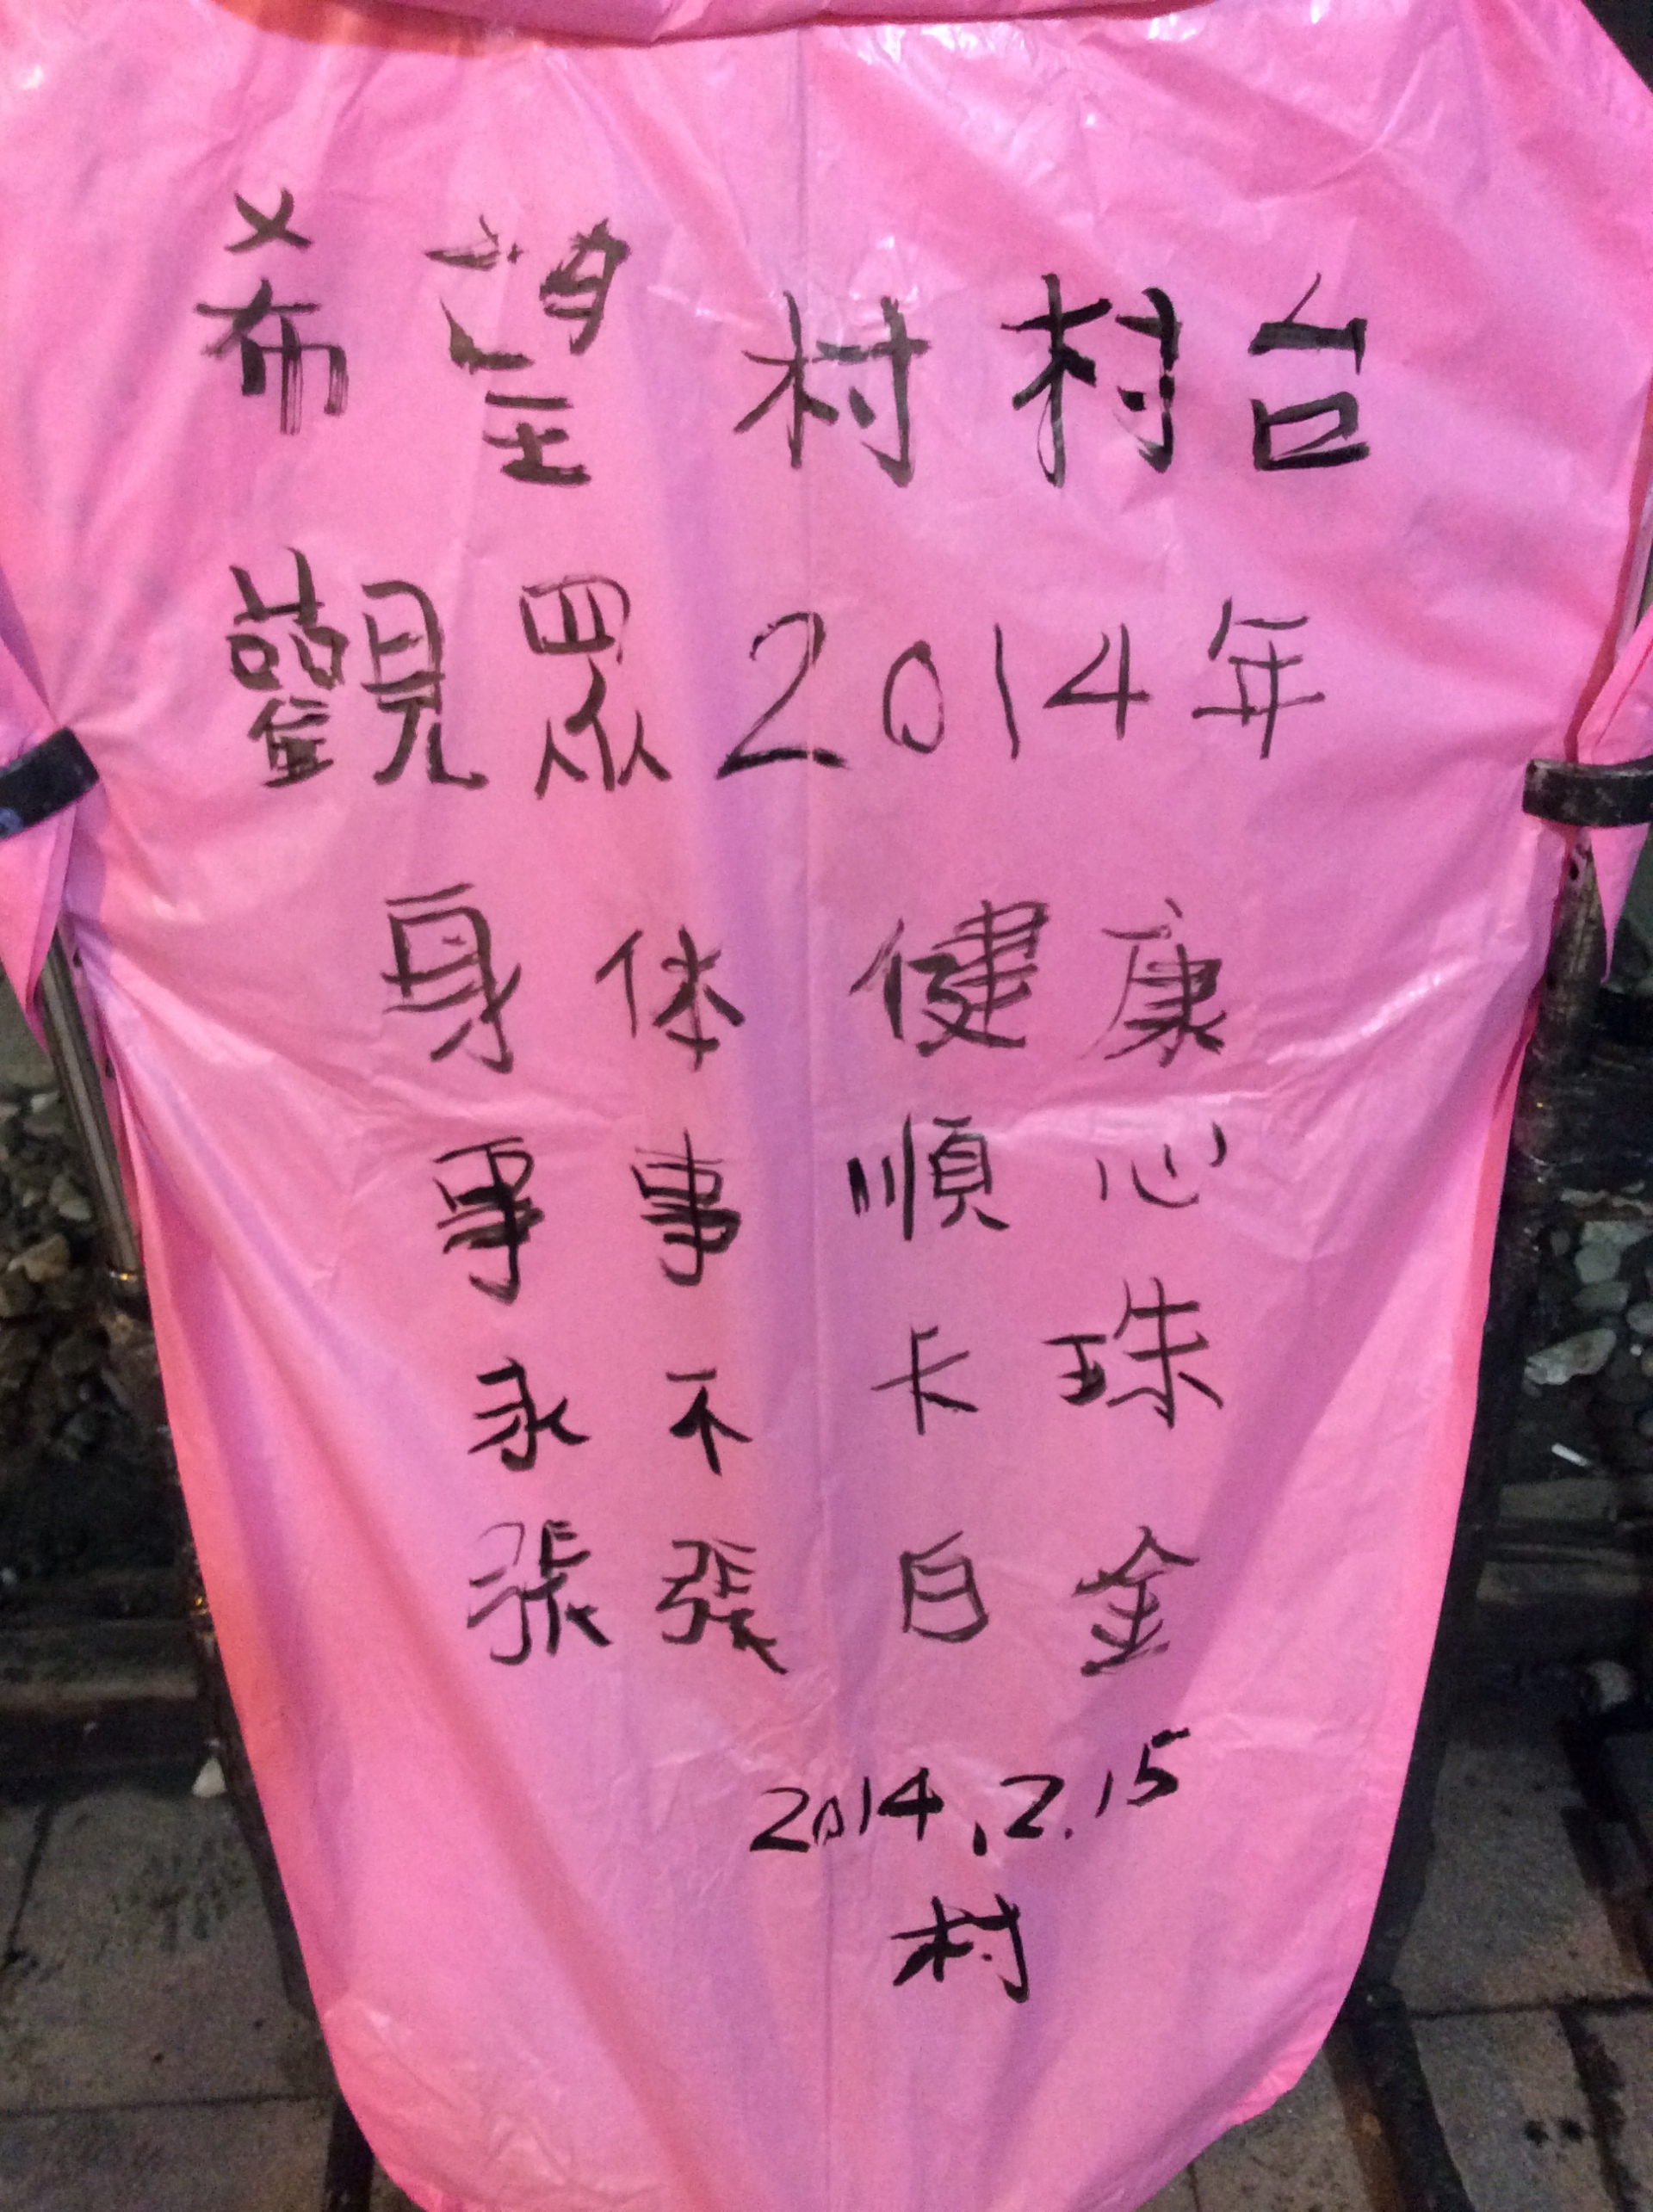 希望村村台
觀眾2014年
身体健康
事事順心
永不卡珠
張張白金
2014.2.15
村